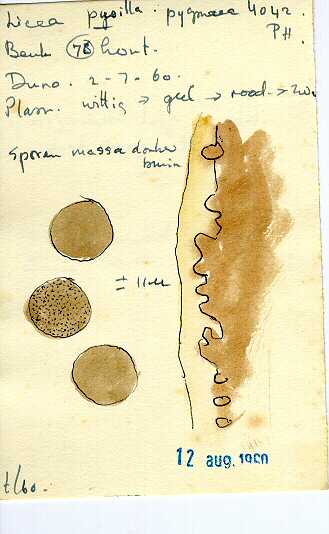 Licea pusilla. pygmaea 4042.
PH.
Beuk 73 hout.
Duno. 2-7-60.
Plasm. wittig → geel → rood →
Sporen massa donker
bruin
± 11
12 aug. 1960
t/60.